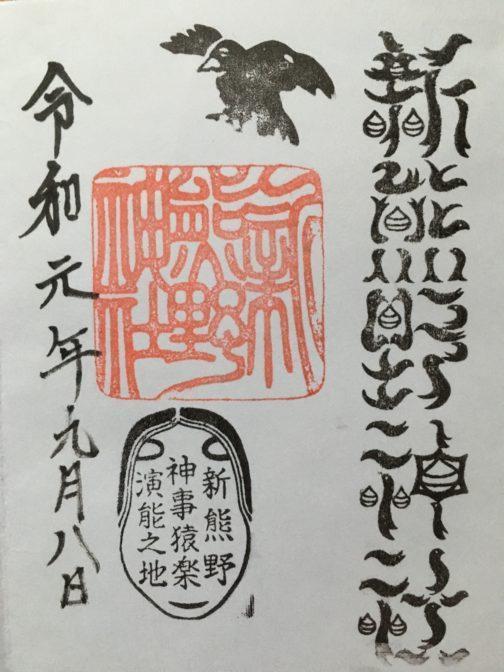 新熊野神社
新熊野神社
新熊野
神事猿楽
演能之地
令和元年九月八日